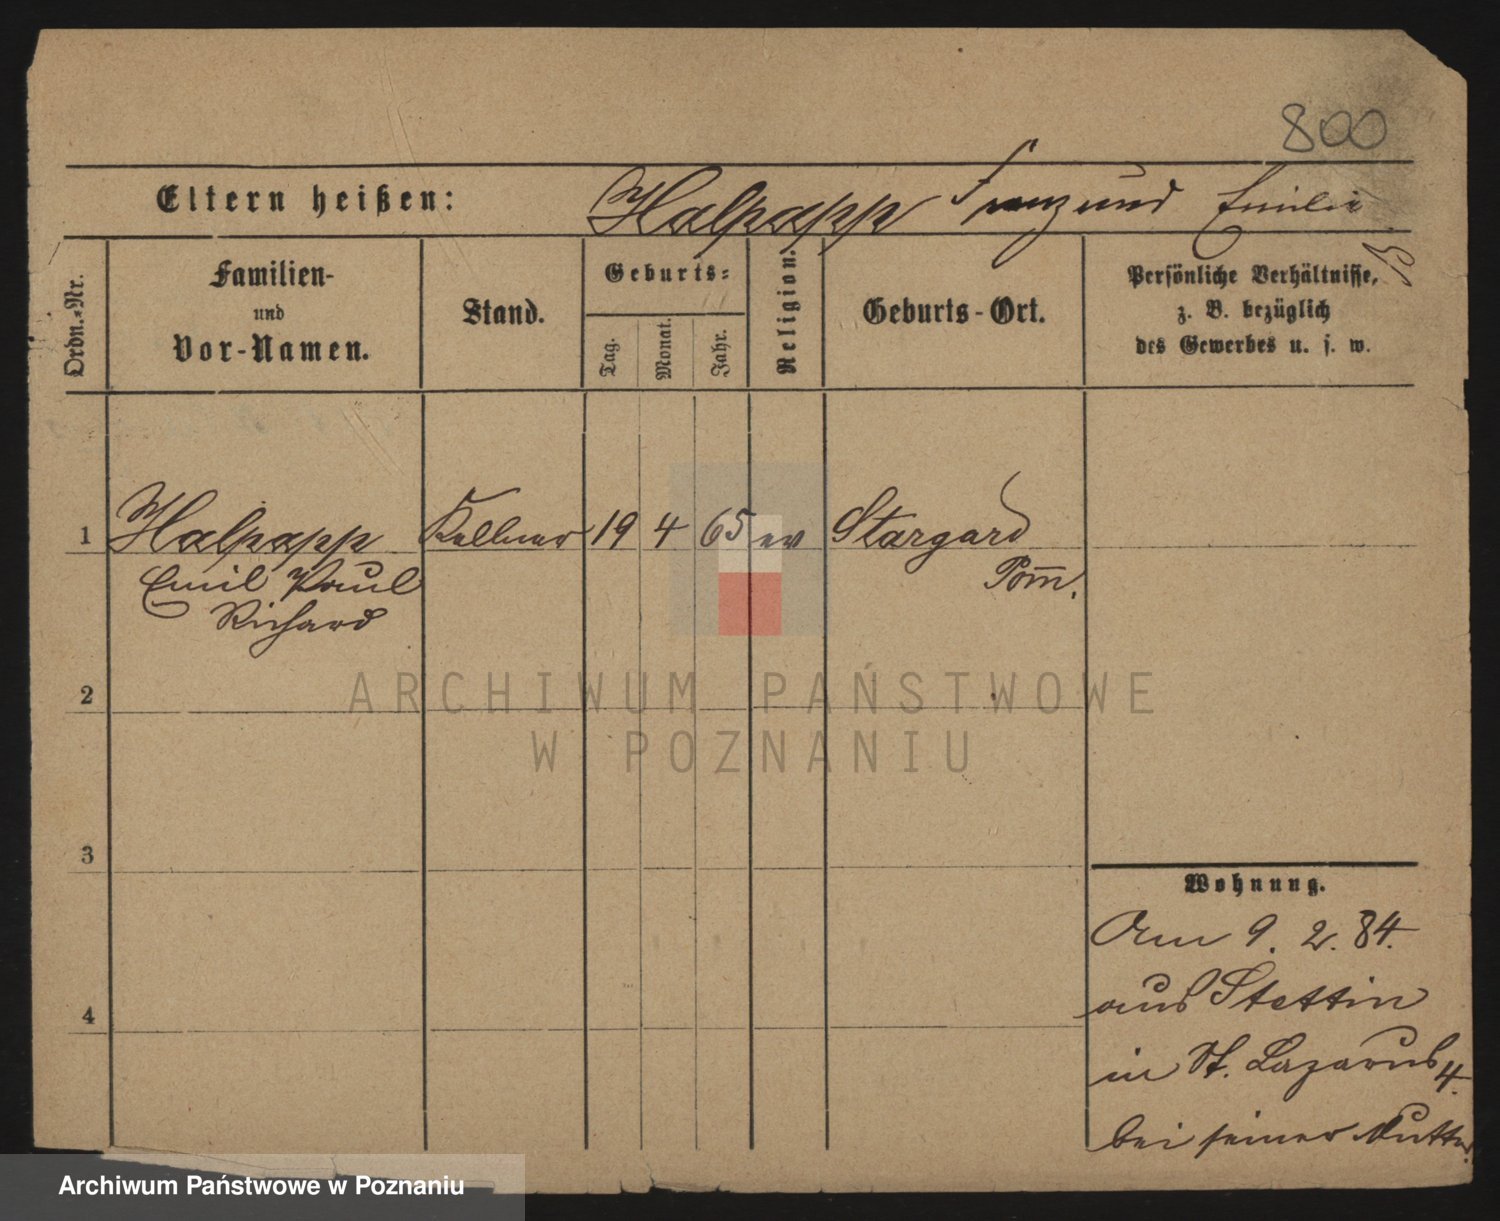 800
Eltern heißen: Halpapp Franz und Emilie
Ordn.-Nr.
Familien-
und
Vor-Namen.
Stand.
Geburts-
Tag.
Monat.
Jahr.
Religion.
Geburts-Ort.
Persönliche Verhältnisse,
z. B. bezüglich
des Gewerbes u. s. w.
1 Halpapp Kellner 19 4 65 ev Stargard
Emil Paul Pom̅.
Richard
2
ARCHIWUM PAŃSTWOWE
W POZNANIU
3
Wohnung.
Am 9. 2. 84.
aus Stettin
4
in St. Lazarus 4.
bei seiner Mutter.
Archiwum Państwowe w Poznaniu